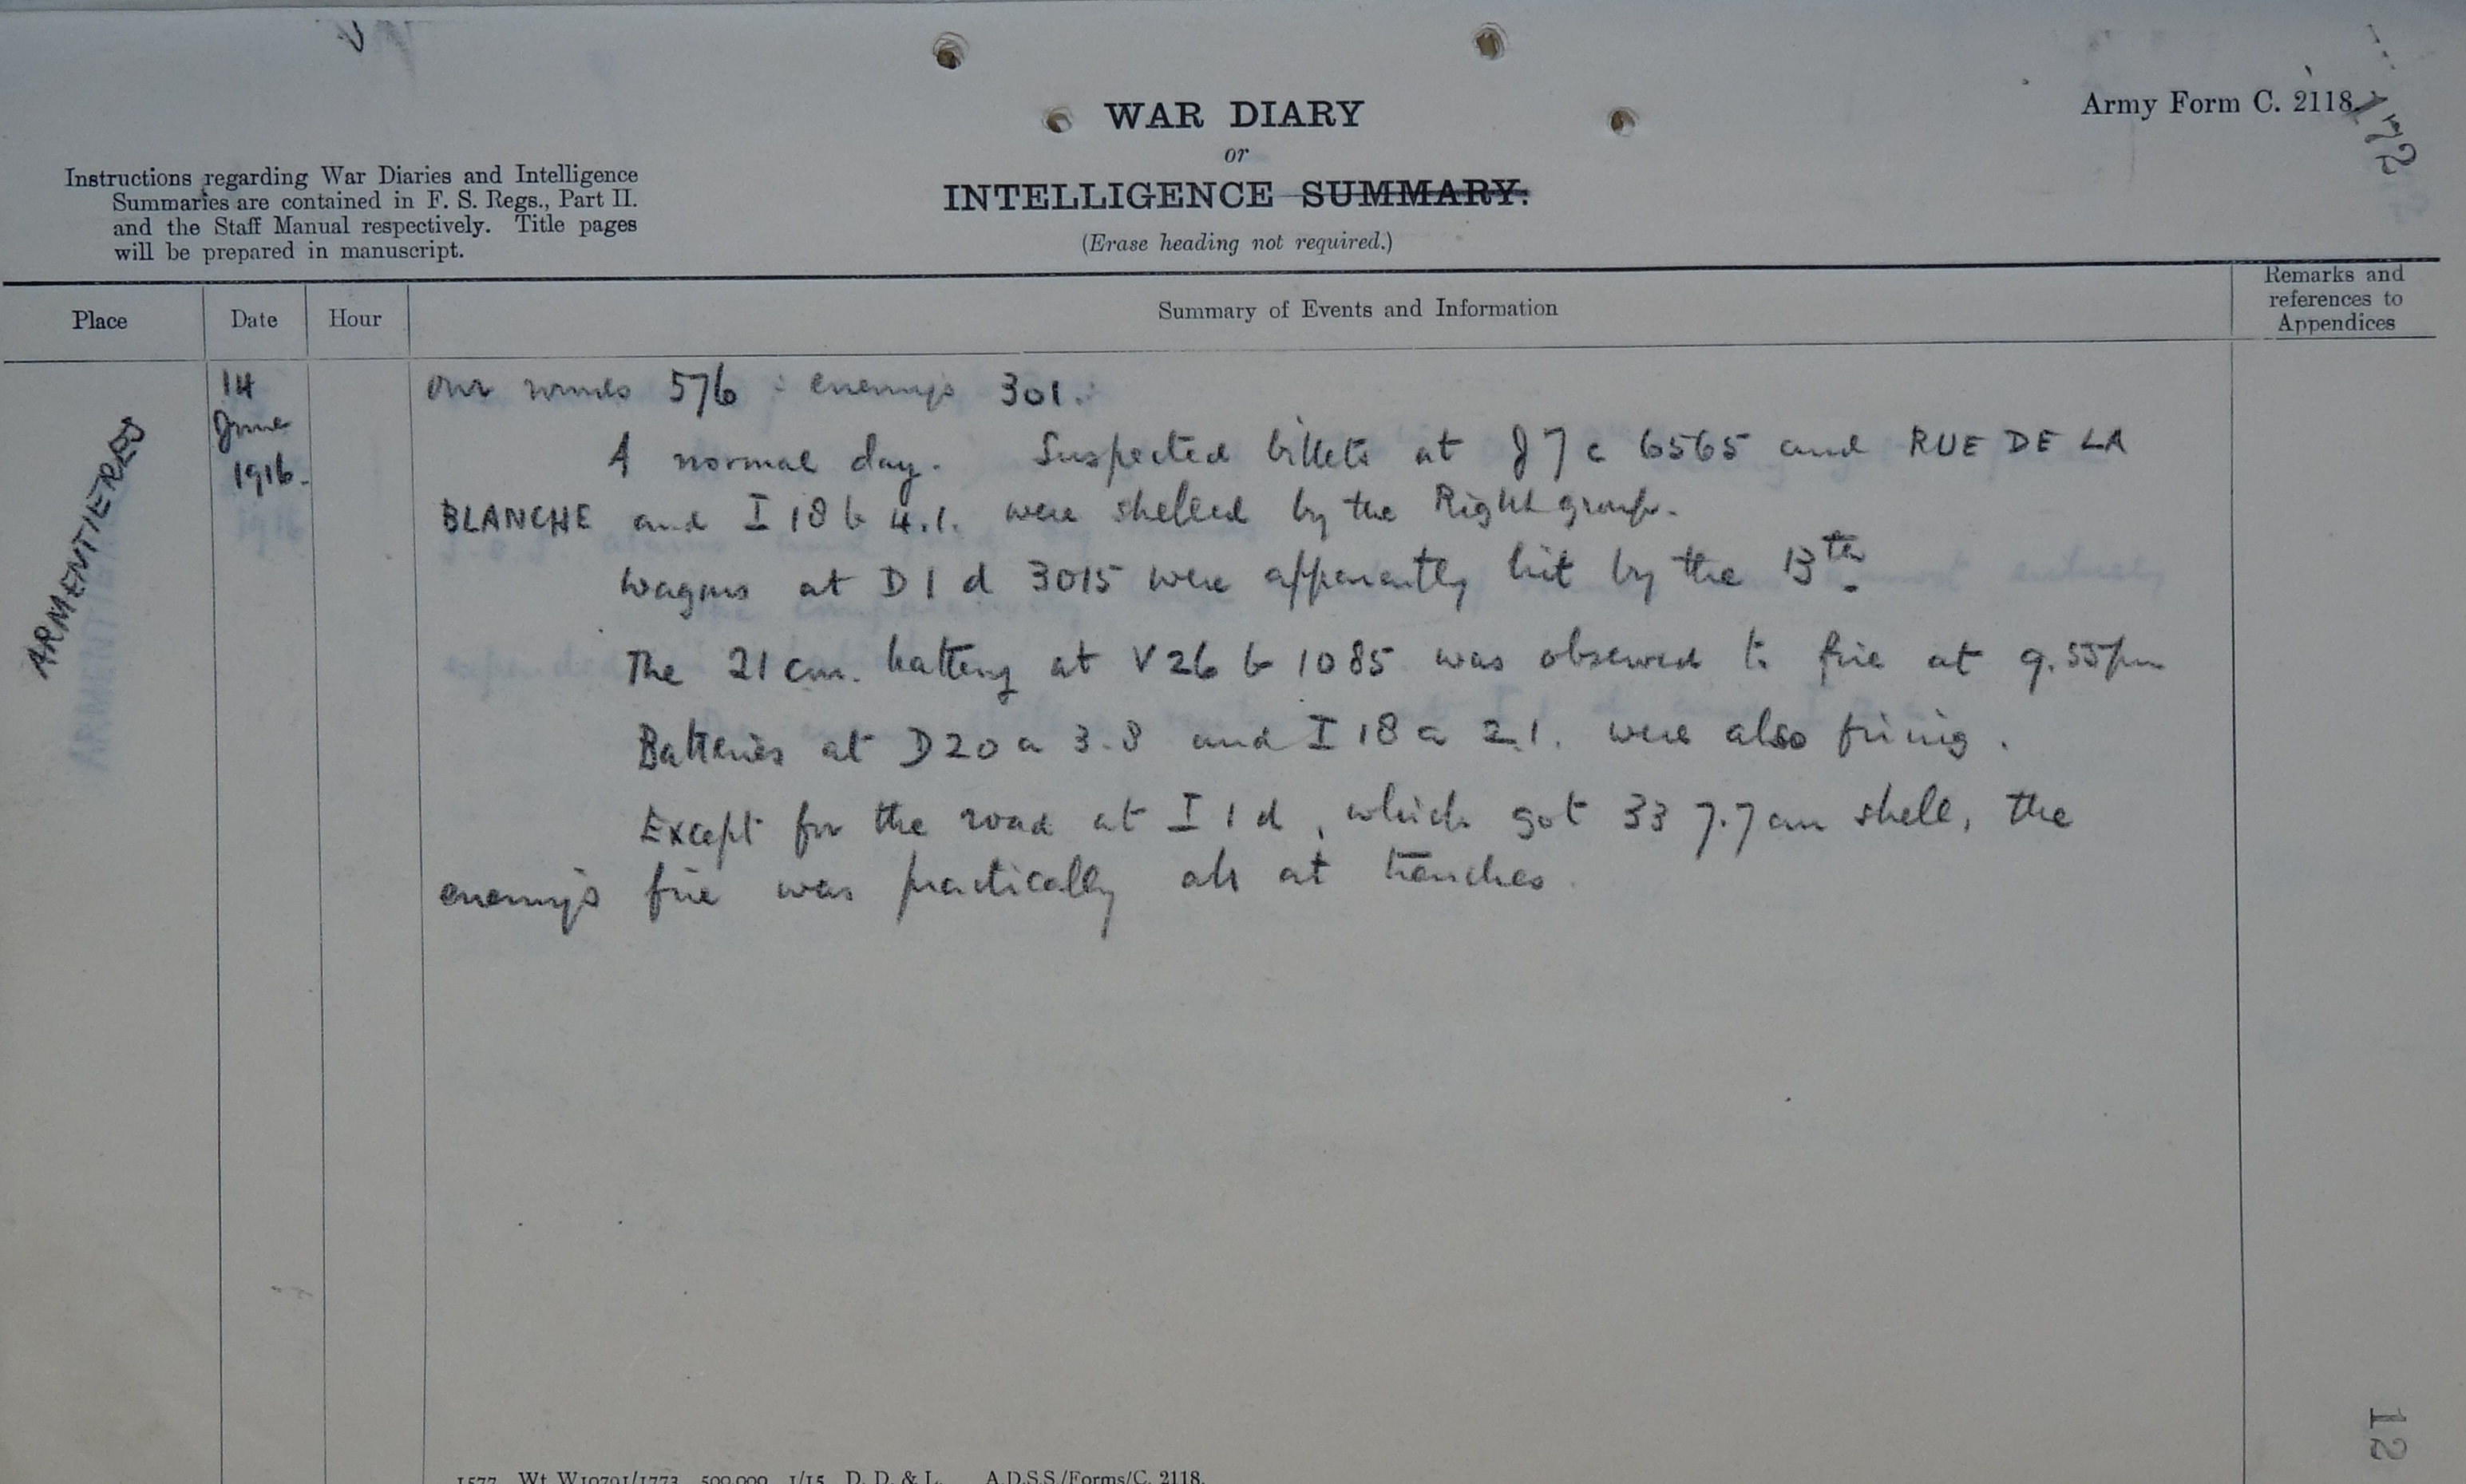 WAR DIARY
or
INTELLIGENCE SUMMARY.
(Erase heading not required.)
Army Form C. 2118.
172
Instructions regarding War Diaries and Intelligence
Summaries are contained in F. S. Regs., Part II.
and the Staff Manual respectively. Title pages
will be prepared in manuscript.
Place
Date
Hour
Summary of Events and Information
Remarks and
references to
Appendices
ARMENTIERES
14
June
1916.
our rounds 576 : enemys 301.
A normal day. Suspected billets at J 7 c 6565 and RUE DE LA
BLANCHE and I 18 b 4.1. were shelled by the Right group.
Wagons at D 1 d 3015 were apparently hit by the 13th.
The 21 cm. battery at V 26 b 1085 was observed to fire at 9.55pm
Batteries at D 20 a 3.8 and I 18 a 2.1. were also firing.
Except for the road at I 1 d, which got 33 7.7 cm shell, the
enemy's fire was practically all at trenches.
1577 Wt. W10791/1773 500,000 1/15 D. D. & L. A.D.S.S./Forms/C. 2118.
12